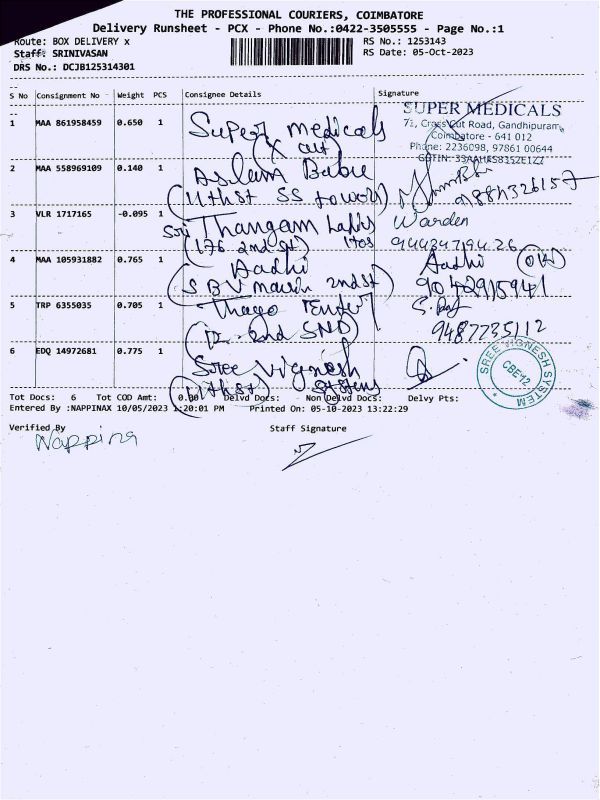 THE PROFESSIONAL COURIERS, COIMBATORE
Delivery Runsheet - PCX - Phone No.:0422-3505555 - Page No.:1
Route: BOX DELIVERY x
RS No.: 1253143
Staff: SRINIVASAN
RS Date: 05-Oct-2023
DRS No.: DCJB125314301
S No Consignment No Weight PCS Consignee Details Signature
1 MAA 861958459 0.650 1 Super medicals
(X cut)
SUPER MEDICALS
71, Cross Cut Road, Gandhipuram,
Coimbatore - 641 012
Phone: 2236098, 97861 00644
GSTIN:
2 MAA 558969109 0.140 1 Aslam Babu
(11th st SS tower)
9884326157
3 VLR 1717165 -0.095 1 Sri Thangam Ladies
(176 2nd st) Htos
Warden
9443479426
4 MAA 105931882 0.765 1 Aadhi
(SBV 2nd st)
Aadhi
9042915941
5 TRP 6355035 0.705 1
2nd
9487735112
6 EDQ 14972681 0.775 1 Sree Vignesh
(11th st) systems
SREE VIGNESH SYSTEM
CBE-12
Tot Docs: 6 Tot COD Amt: 0.00 Delvd Docs: Non Delvd Docs: Delvy Pts:
Entered By :NAPPINAX 10/05/2023 1:20:01 PM Printed On: 05-10-2023 13:22:29
Verified By
Staff Signature
Nappina